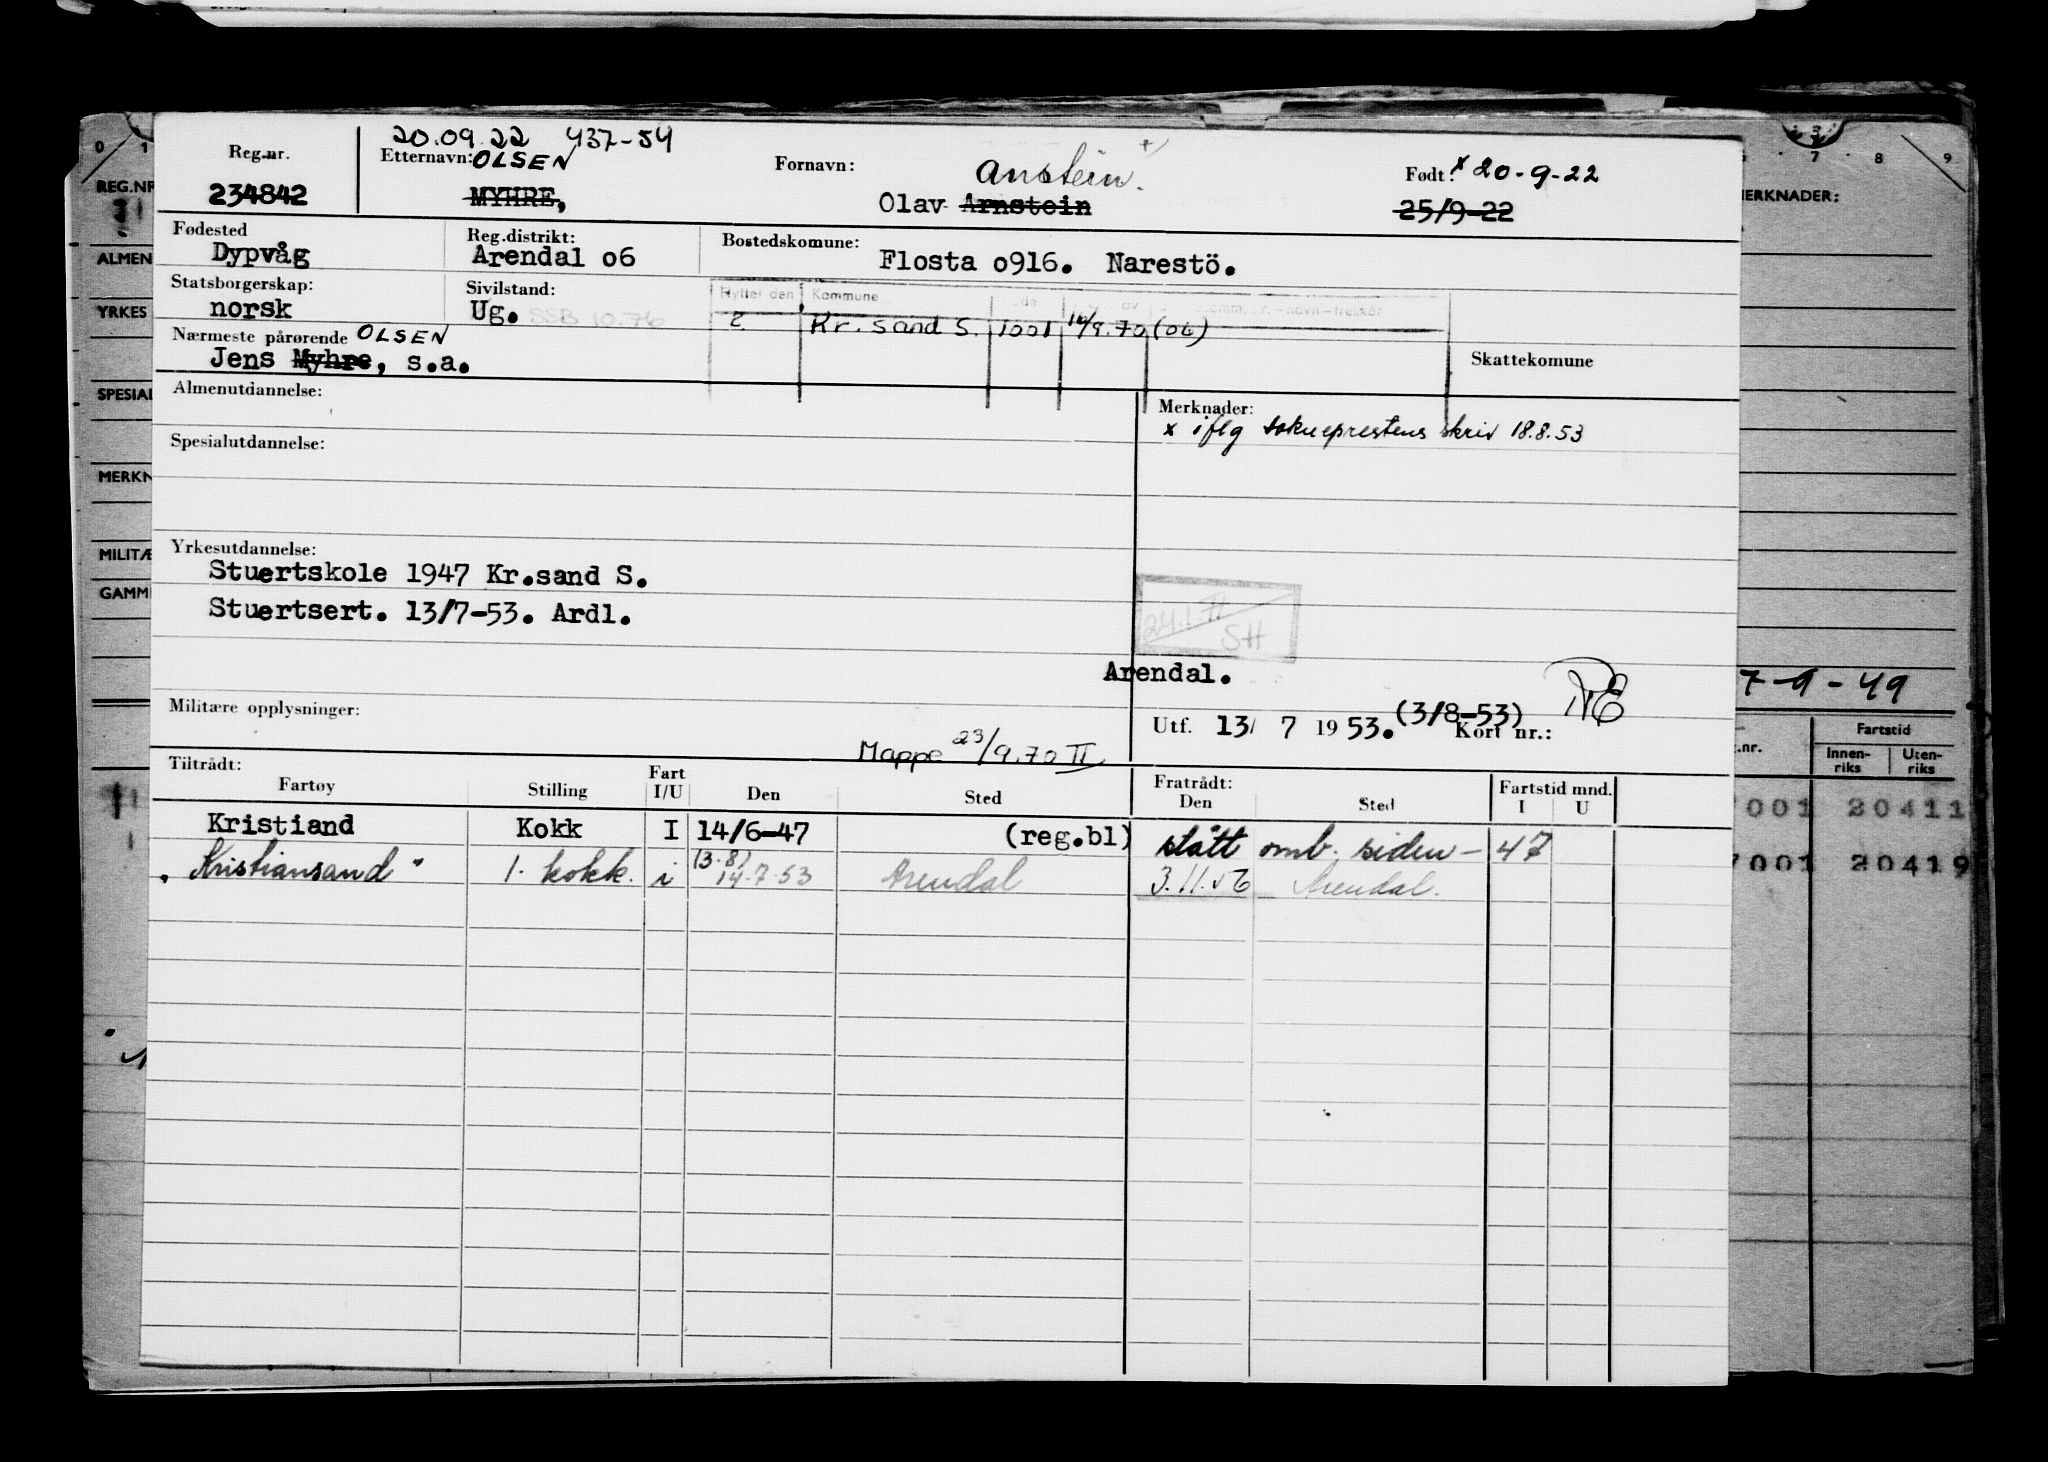 20.09.22 437-54
Reg.nr. Etternavn: OLSEN Fornavn: Anstein. Født: x 20-9-22
234842 MYHRE, Olav Arnstein 25/9-22
Fødested Reg.distrikt: Bostedskomune:
Dypvåg Arendal o6 Flosta o916. Narestö.
Statsborgerskap: Sivilstand: Flyttet den Kommune
norsk Ug. SSB 10.76 2 Kr. Sand S. 1001 16/9.70 (06)
Nærmeste pårørende OLSEN
Jens Myhre, s.a. Skattekomune
Almenutdannelse: Merknader:
x iflg sokneprestens skriv 18.8.53
Spesialutdannelse:
Yrkesutdannelse:
Stuertskole 1947 Kr.sand S.
Stuertsert. 13/7-53. Ardl.
24.1. II
SH
Arendal.
Militære opplysninger: Utf. 13/ 7 1953. (3/8-53) Kort nr.:
Mappe 23/9.70 II
Tiltrådt: Fratrådt:
Fartøy Stilling Fart I/U Den Sted Den Sted Fartstid mnd. I U
Kristiand Kokk I 14/6-47 (reg.bl) stått omb. siden - 47
"Kristiansand" 1. kokk. i (3.8) 14.7.53 Arendal 3.11.56 Arendal.
0 1 3 7 8 9
REG.NR
MERKNADER:
ALMEN
YRKES
SPESIAL
MERKN
MILITÆ
GAMM
7-9-49
.nr. Fartstid
Innenriks Utenriks
001 20411
7001 20419